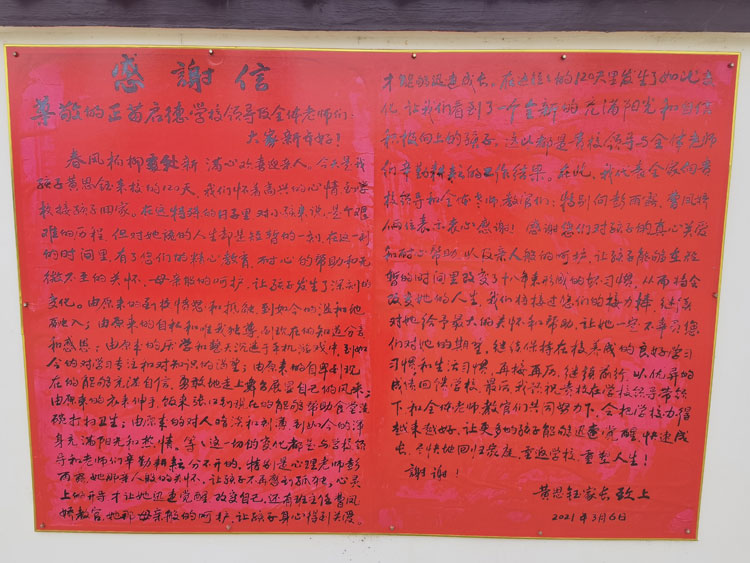 感謝信
尊敬的正苗启德学校领导及全体老师们:
大家新年好!
春风杨柳 新 满心欢喜迎亲人,今天是我
孩子黄思钰来校的120天,我们怀着高兴的心情到
校接孩子回家。在这特殊的日子里对小孩来说,是个艰
难的历程,但对她 的人生却是短暂的一刻,在这一刻
的时间里有了您们的精心教育,耐心的帮助和无
微不至的关怀、母亲般的呵护,让孩子发生了深刻的
变化。由原来的 愤怒和抵抗,到如今的温和地
融入;由原来的自私和唯我独尊,到现在的知道分享
和感恩;由原来的厌学和整天沉迷于手机游戏中,到如
今的对学习专注和对知识的渴望;由原来的自卑到现
在的能够充满自信,勇敢地走上舞台展显自己的风采;
由原来的衣来伸手,饭来张口到现在的能够帮助食堂洗
碗打扫卫生;由原来的对人 淡和 到如今的浑
身充满阳光和热情。等等这一切的变化都是与学校领
导和老师们辛勤耕耘分不开的,特别是心理老师彭
雨 她那亲人般的关怀,让孩子不再感到孤独,心灵
上的开导才让她迅速觉醒改变自己,还有班主任曹凤
娇教官她那母亲般的呵护,让孩子身心得到关爱。
才能的迅速成长,在这短短的120天里发生了如此变
化,让我们看到了一个全新的充满阳光和自信
积极向上的孩子,这些都是贵校领导与全体老师
们辛勤耕耘的工作结果。在此,我代表全家向贵
校领导和全体老师教官们;特别向彭雨 、曹凤娇
俩位表示衷心感谢!感谢您们对孩子的真心关爱
和耐心帮助,以及亲人般的呵护,让孩子能够在短
暂的时间里改变了 年来形成的坏习惯,从而将会
改变她的人生,我们将接过您们的接力棒,继续
对她给予最大的关怀和帮助,让她一定不辜负您
们对她的期望,继续保持在校养成的良好学习
习惯和生活习惯,再接再历,继续前行,以优异的
成绩回馈学校。最后我祝贵校在学校领导带领
下和全体老师教官们共同努力下,会把学校办得
越来越好,让更多的孩子能够迅速觉醒,快速成
长,尽快地回归家庭,重返学校,重点人生!
謝謝!
黄思钰家长 敬上
2021年3月6日